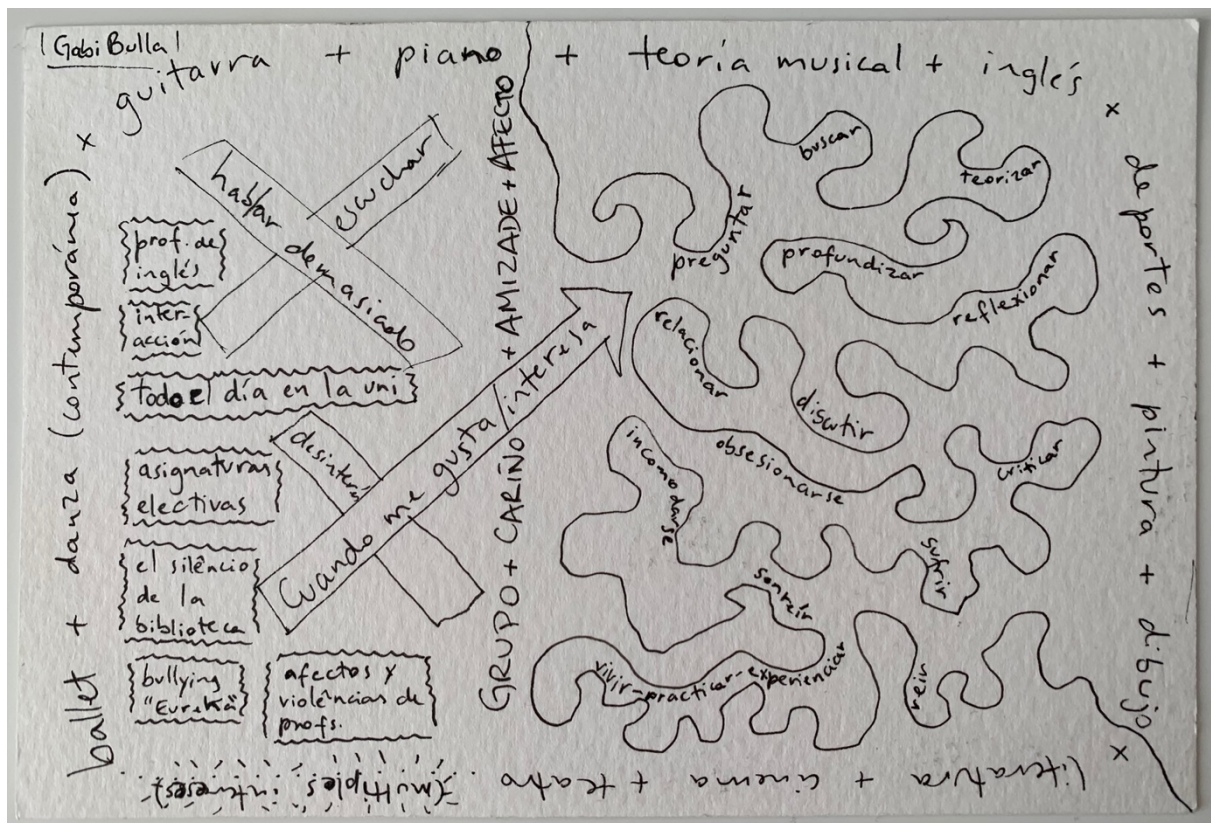 Gabi Bulla
guitarra + piano + teoría musical + inglés x
deportes + pintura + dibujo x
literatura + cinema + teatro
(múltiples intereses)
ballet + danza (contemporánea) x
hablar demasiado
escuchar
prof. de
inglés
inter-
acción
todo el día en la uni
desinterés
Cuando me gusta/interesa
asignaturas
electivas
el silêncios
de la
biblioteca
bullying
"Eureka"
afectos y
violências de
profs.
GRUPO + CARIÑO + AMIZADE + AFECTO
preguntar
buscar
teorizar
profundizar
reflexionar
relacionar
discutir
obsesionarse
criticar
incomodarse
sufrir
sonreír
vivir-practicar-experienciar
reir